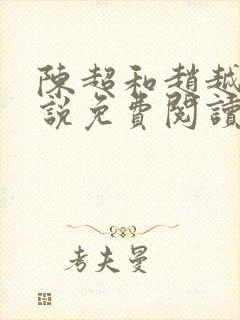 陳超和趙越
說免費閱讀
考夫曼